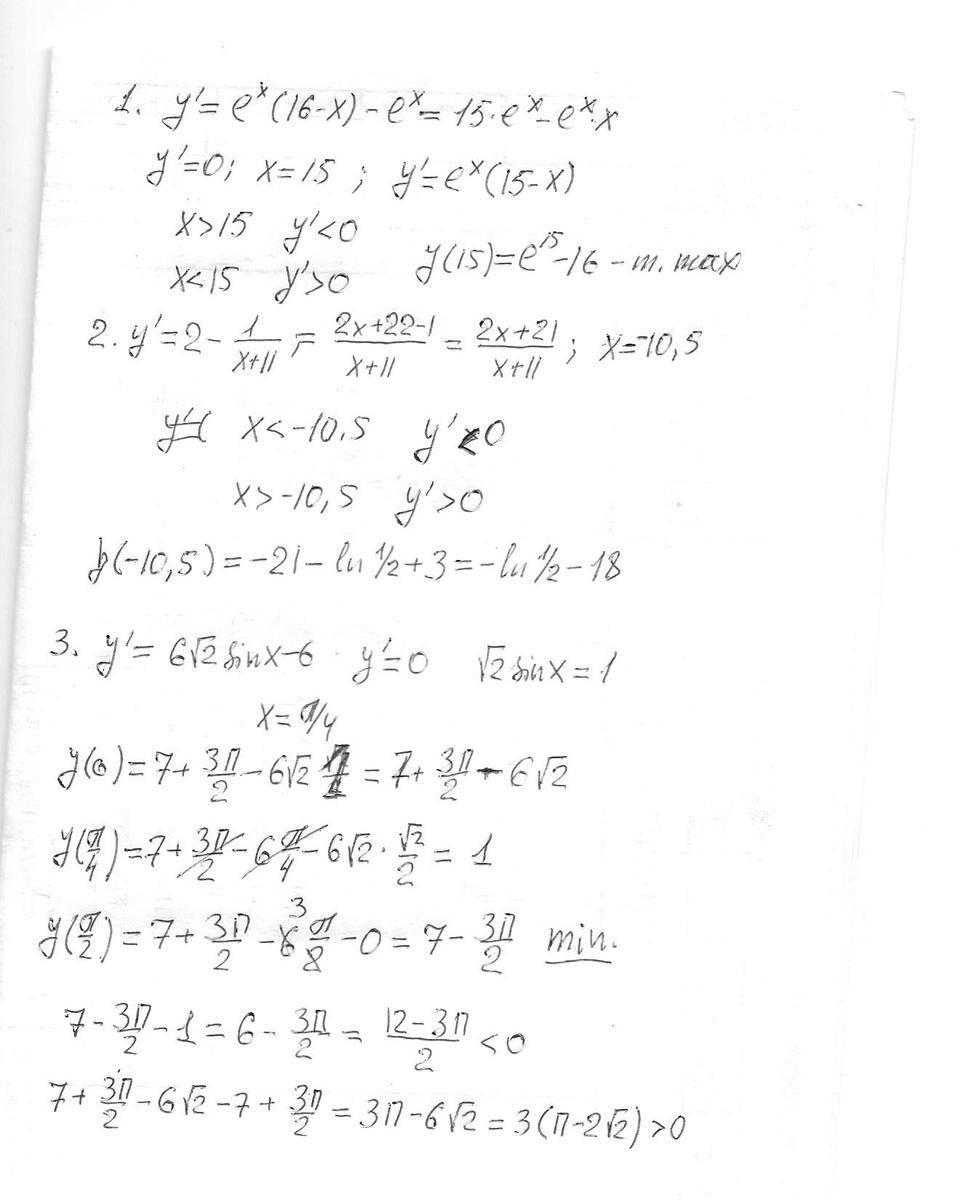 1. y'= eˣ(16-x) - eˣ = 15·eˣ - eˣ·x
y'=0; x=15 ; y'=eˣ(15-x)
x>15 y'<0
x<15 y'>0 y(15)=e¹⁵-16 - т. max
2. y'=2 - 1/(x+11) ; = (2x+22-1)/(x+11) = (2x+21)/(x+11) ; x=-10,5
x<-10,5 y'<0
x>-10,5 y'>0
y(-10,5)=-21- ln 1/2 +3 = -ln 1/2 - 18
3. y'= 6√2 sinx-6 y'=0 √2 sinx=1
x=π/4
y(0)=7+ 3π/2 - 6√2 · 1 = 7+ 3π/2 - 6√2
y(π/4)=7+ 3π/2 - 6 π/4 - 6√2 · √2/2 = 1
y(π/2)=7+ 3π/2 - 6 3 π/2 - 0 = 7 - 3π/2 min.
7 - 3π/2 - 1 = 6 - 3π/2 = (12-3π)/2 <0
7+ 3π/2 - 6√2 - 7 + 3π/2 = 3π-6√2 = 3(π-2√2) >0